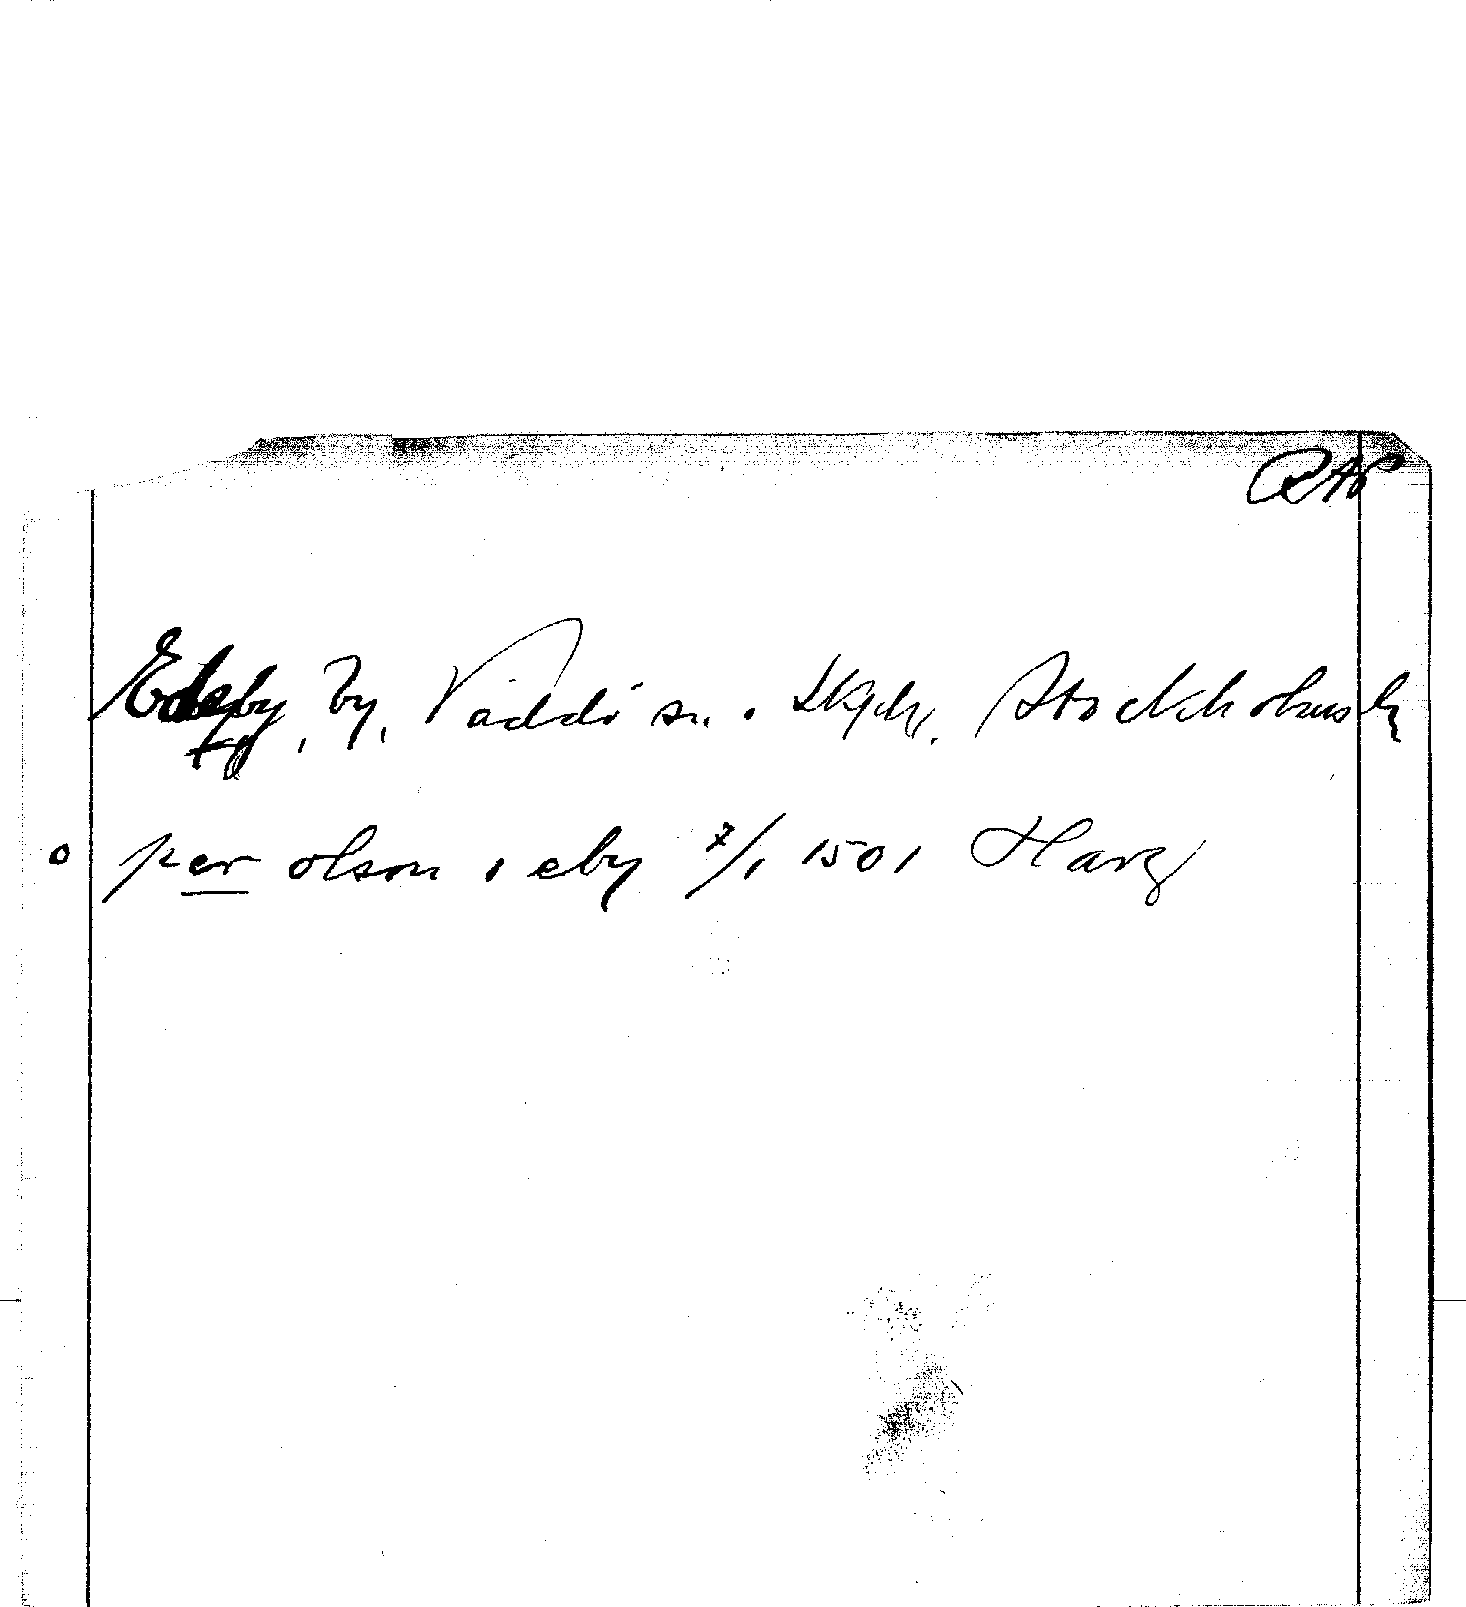 RAP
Edeby, by, Väddö sn. o. skplg. Stockholms l.
o per olson i eby 7/1 1501 Harg